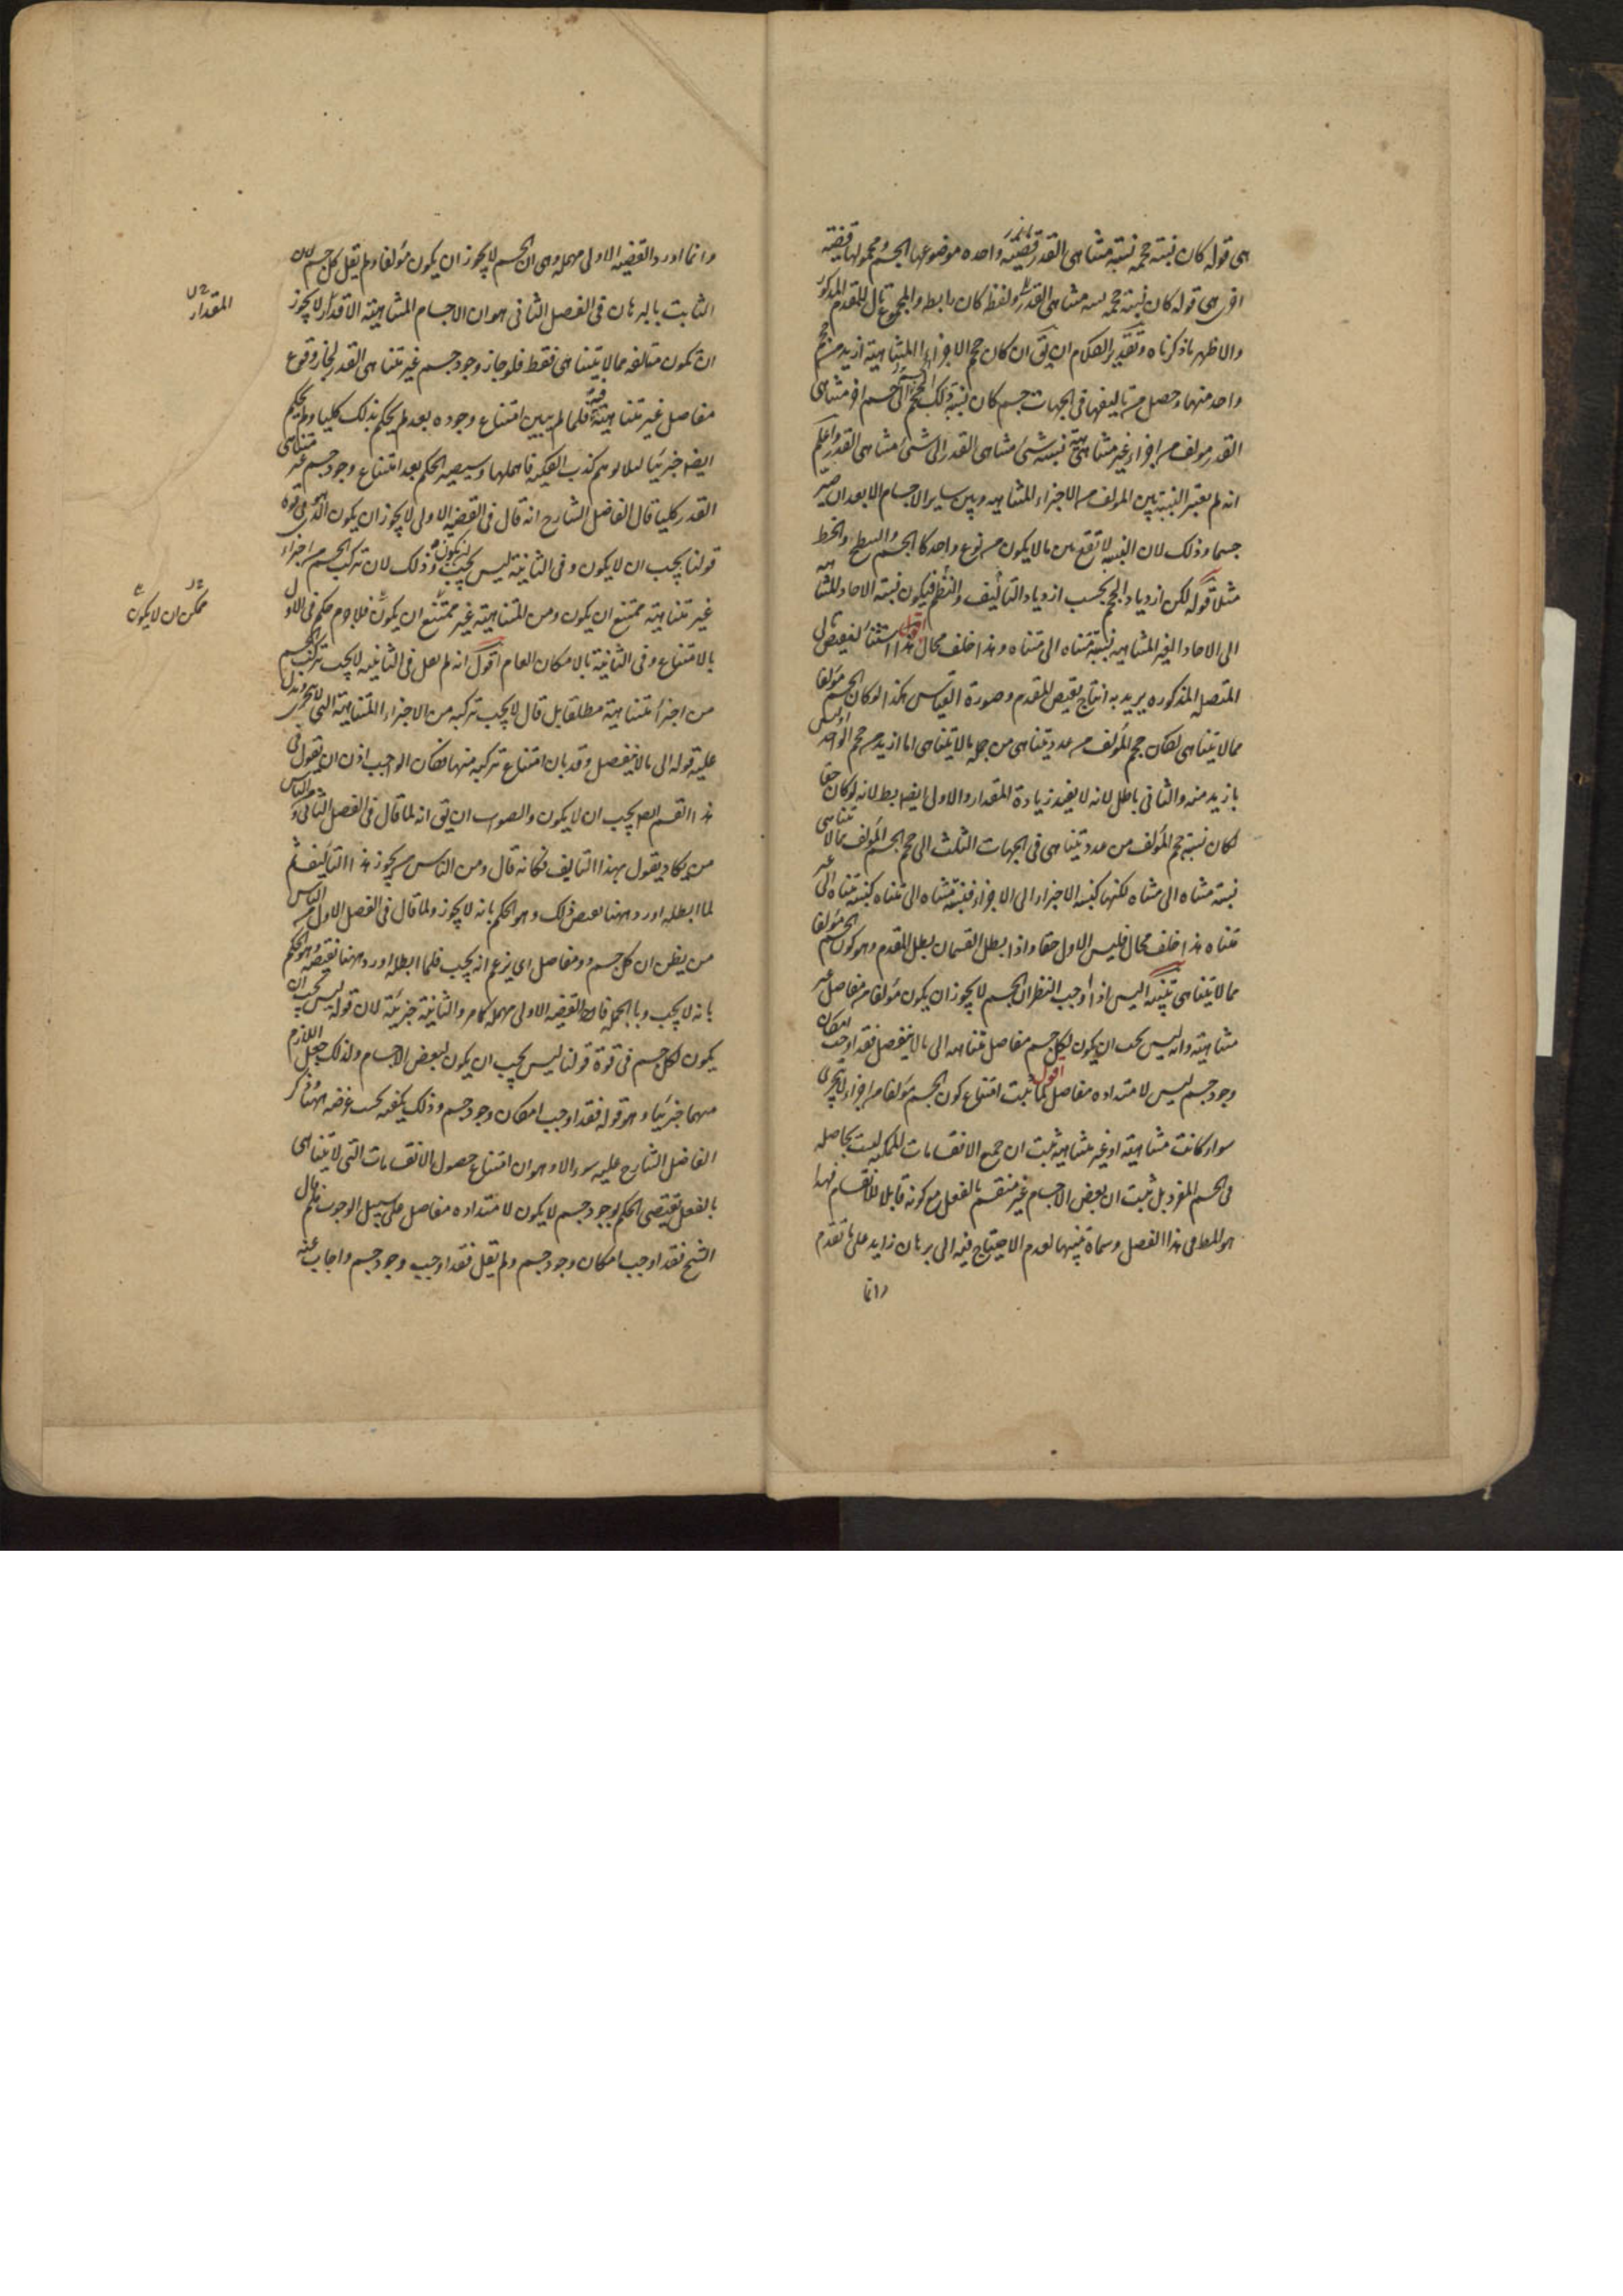 هى قوله كان نسبة حجمه نسبة متناهى القدر قضية واحدة موضوعها الجسم ومحمولها قضية
اخرى هى قوله كان نسبة حجمه نسبة متناهى القدر ولفظ كان رابطة والمجموع تال للمقدم المذكور
والاظهر ما ذكرناه وتقدير الكلام ان يق ان كان حجم الاجزاء المتناهية ازيد من حجم
واحد منها وحصل من تاليفها فى الجهات جسم كان نسبة ذلك الحجم الى جسم اخر متناهى
القدر مولف من اجزاء غير متناهية نسبة شئ متناهى القدر الى شئ متناهى القدر واعلم
انه لم يعتبر النسبة بين المولف من الاجزاء المتناهيه وبين ساير الاجسام الا بعد ان صير
جسما وذلك لان النسبه لا تقع بين ما لا يكون من نوع واحد كالجسم والسطح والخط
مثلا قوله لكن ازدياد الحجم بحسب ازدياد التأليف والنظم فيكون نسبة الاحاد المتناهيه
الى الاحاد الغير المتناهيه نسبة متناه الى متناه وهذا خلف محال اقول هذا استثناء لنقيض تالى
المتصله المذكوره يريد به انتاج نقيض المقدم وصورة القياس هكذا لو كان الجسم مؤلفا
مما لا يتناهى لكان حجم المؤلف من عدد يتناهى من جملة ما لا يتناهى اما ازيد من حجم الواحد او ليس
بازيد منه والثانى باطل لانه لا يفيد زيادة المقدار والاول ايضا بط لانه لو كان حقا
لكان نسبة حجم المؤلف من عدد يتناهى فى الجهات الثلث الى حجم الجسم المؤلف مما لا يتناهى
نسبة متناه الى متناه لكنها كنسبة الاجزاء الى الاجزاء فنسبة متناه الى متناه كنسبة متناه الى غير
متناه هذا خلف محال فليس الاول حقا واذا بطل القسمان بطل المقدم وهو كون الجسم مؤلفا
مما لا يتناهى تنبيه اليس اذا اوجب النظر ان الجسم لا يجوز ان يكون مؤلفا من مفاصل غير
متناهية وانه ليس يجب ان يكون لكل جسم مفاصل متناهيه الى ما لا ينفصل فقد اوجب امكان
وجود جسم ليس لامتداده مفاصل اقول لما ثبت امتناع كون الجسم مؤلفا من اجزاء لا يتجزى
سواء كانت متناهية او غير متناهية ثبت ان جميع الانقسامات الممكنه ليست بحاصله
فى الجسم المفرد بل ثبت ان بعض الاجسام غير منقسم بالفعل مع كونه قابلا للانقسام فهذا
هو المط من هذا الفصل وسماه تنبيها لعدم الاحتياج فيه الى برهان زايد على ما تقدم
وانما
وانما اورد القضية الاولى مهملة وهى ان الجسم لا يجوز ان يكون مؤلفا ولم يقل كل جسم لان
الثابت بالبرهان فى الفصل الثانى هو ان الاجسام المتناهية الاقدار لا يجوز
ان تكون متالفه مما لا يتناهى فقط فلو جاز وجود جسم غير متناهى القدر لجاز وقوع
مفاصل غير متناهية فيه فلما لم يبين امتناع وجوده بعد لم يحكم بذلك كليا ولم يحكم
ايضا جزئيا لئلا يوهم كذب الكلية فاهملها وسيصير الحكم بعد امتناع وجود جسم غير متناهى
القدر كليا قال الفاضل الشارح انه قال فى القضية الاولى لا يجوز ان يكون الذى هو فى قوة
قولنا يجب ان لا يكون وفى الثانية ليس يجب ان يكون وذلك لان تركب الجسم من اجزاء
غير متناهية ممتنع ان يكون ومن المتناهية غير ممتنع ان يكون فلا جرم حكم فى الاول
بالامتناع وفى الثانية بالامكان العام اقول انه لم يقل فى الثانيه لا يجب تركب الجسم
من اجزاء متناهية مطلقا بل قال لا يجب تركبه من الاجزاء المتناهية التى لا تتجزى ويدل
عليه قوله الى ما لا ينفصل وقد بان امتناع تركبه منها فكان الواجب اذن ان يقول فى
هذا القسم ايضا يجب ان لا يكون والصواب ان يق انه لما قال فى الفصل الثانى ومن الناس
من يكاد يقول بهذا التأليف فكانه قال ومن الناس من يجوز هذا التأليف ثم
لما ابطله اورد ههنا نقيض ذلك وهو الحكم بانه لا يجوز ولما قال فى الفصل الاول من الناس
من يظن ان كل جسم ذو مفاصل اى يزعم انه يجب فلما ابطله اورد ههنا نقيضه وهو الحكم
بانه لا يجب وبالجمله فالقضيه الاولى مهملة كما مر والثانية جزئية لان قوله ليس يجب ان
يكون لكل جسم فى قوة قولنا ليس يجب ان يكون لبعض الاجسام ولذلك جعل اللازم
منهما جزئيا وهو قوله فقد اوجب امكان وجود جسم وذلك يكفيه بحسب غرضه ههنا ذكر
الفاضل الشارح عليه سوءالا وهو ان امتناع حصول الانقسامات التى لا يتناهى
بالفعل يقتضى الحكم بوجود جسم لا يكون لامتداده مفاصل على سبيل الوجوب فلم قال
الشيخ فقد اوجب امكان وجود جسم ولم يقل فقد اوجب وجود جسم واجاب عنه
المقدار
ممكن ان لا يكون